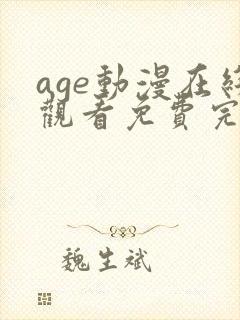 age動漫在線
觀看免費完
魏生斌